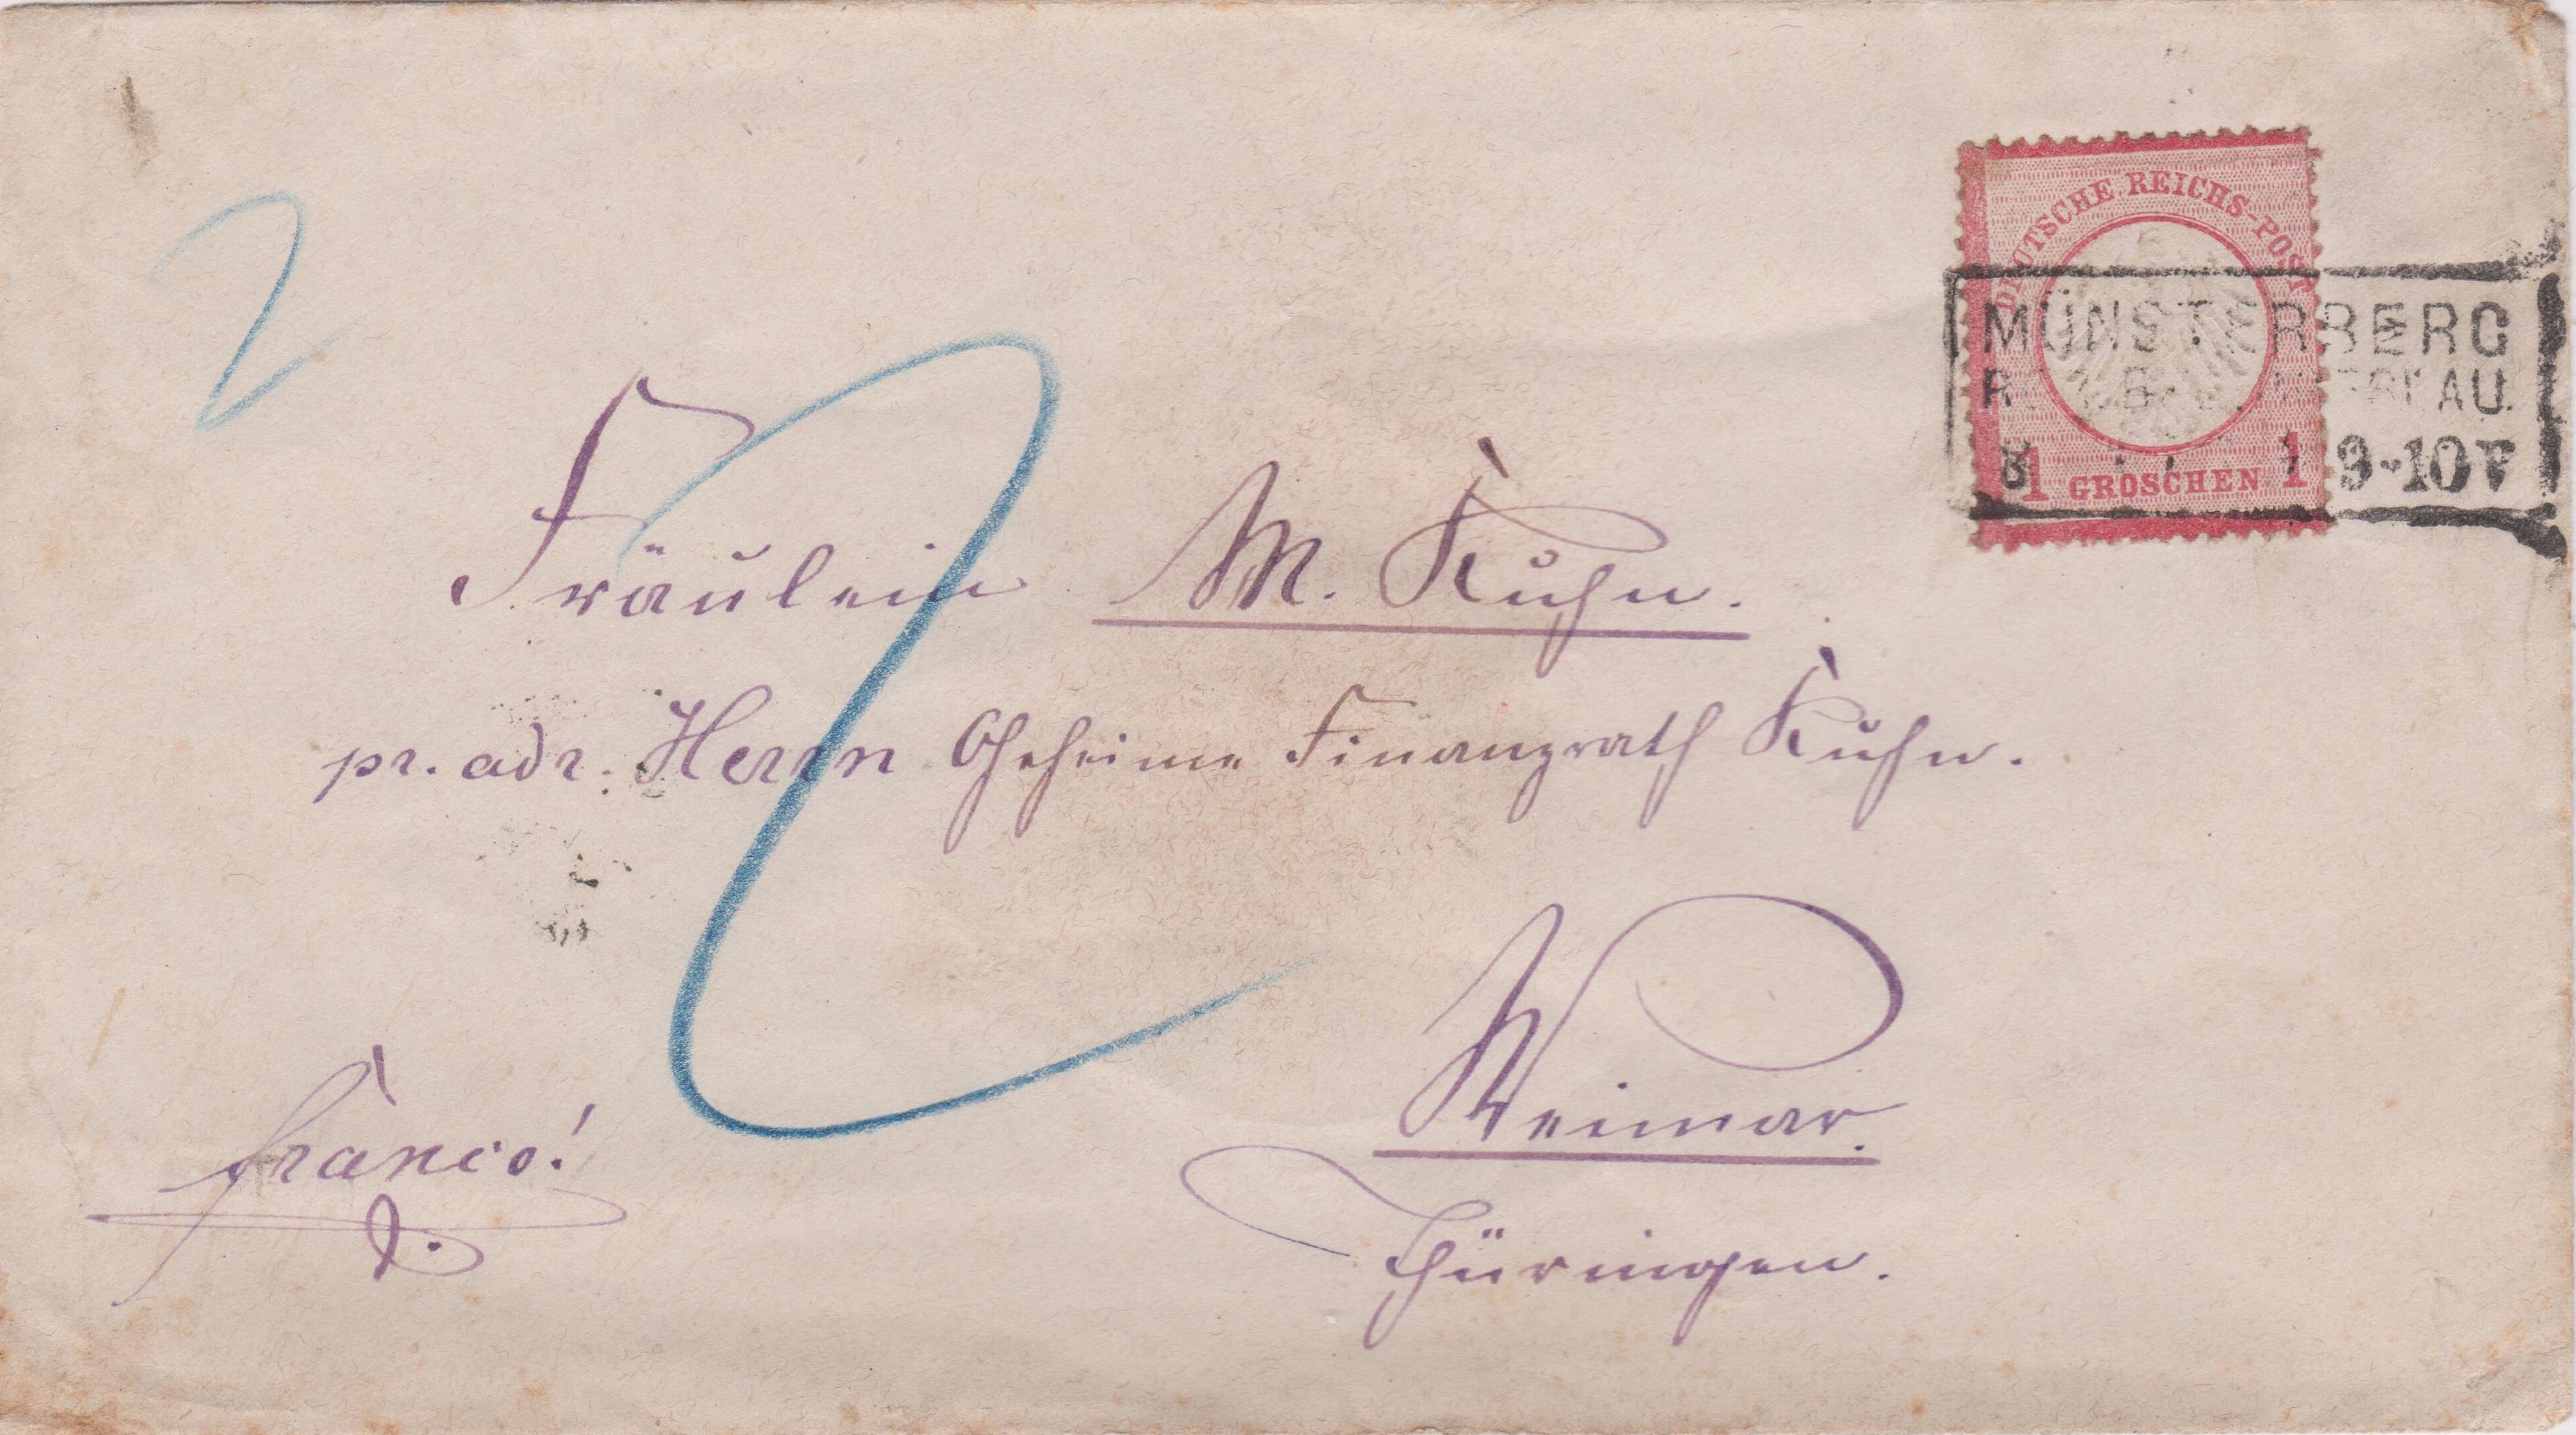 2
DEUTSCHE REICHS-POST
MÜNSTERBERG
1 GROSCHEN 1
9-10V
2
Fräulein M. Kuhn.
pr. adr. Herrn Geheime Finanzrath Kuhn.
Weimar.
franco!
Thüringen.